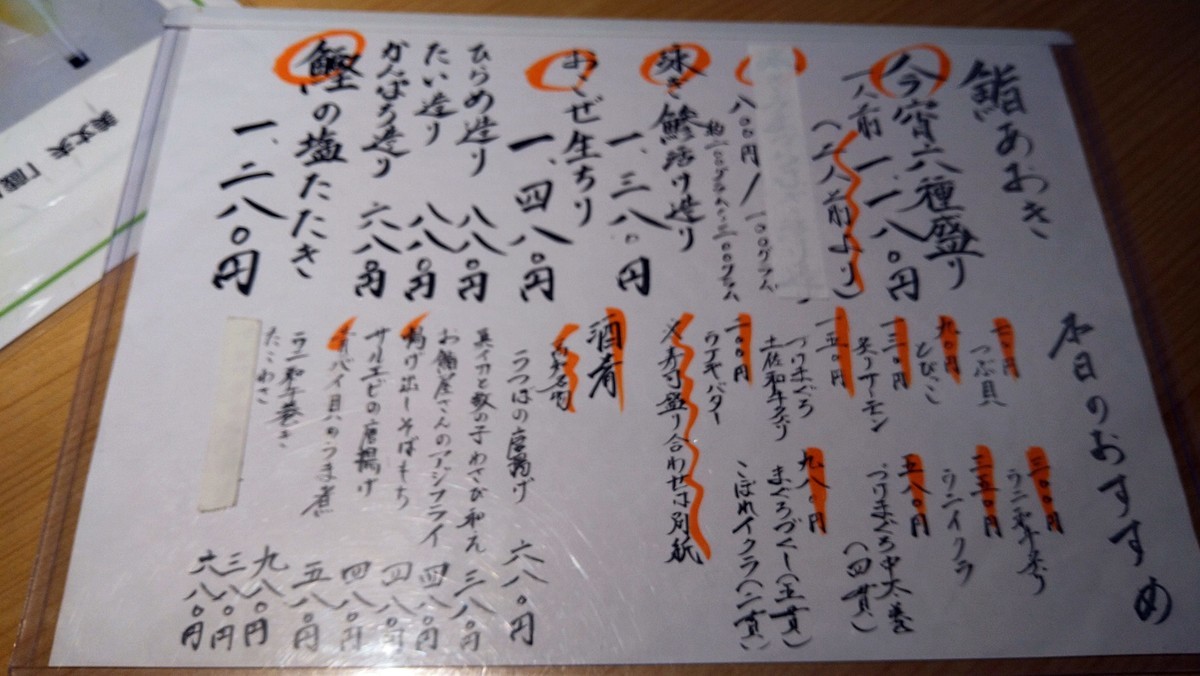 鮨あおき
本日のおすすめ
今宵六種盛り
一人前 一、一八〇円
(二人前より)
八〇〇円/一〇〇グラム
約二〇〇グラム〜三〇〇グラム
泳ぎ鯵活け造り
一、三八〇円
おこぜ生ちり
一、四八〇円
ひらめ造り 八八〇円
たい造り 八八〇円
かんぱち造り 六八〇円
鰹の塩たたき
一、二八〇円
三〇〇円
ウニ和牛炙り
三五〇円
ウニイクラ
五八〇円
づけまぐろ中太巻
(四貫)
九八〇円
まぐろづくし(五貫)
こぼれイクラ(二貫)
つぶ貝
九〇円
とびっこ
一三〇円
炙りサーモン
一五〇円
づけまぐろ
土佐和牛炙り
一〇〇円
ウナギバター
※寿司盛り合わせは別紙
酒肴
うつぼの唐揚げ 六八〇円
真イカと数の子わさび和え 三八〇円
お鮨屋さんのアジフライ 四八〇円
揚げ出しそばもち 四八〇円
サルエビの唐揚げ 四八〇円
バイ貝のうま煮 五八〇円
ウニ和牛巻き 九八〇円
たこわさ 三八〇円
六八〇円
美丈夫「